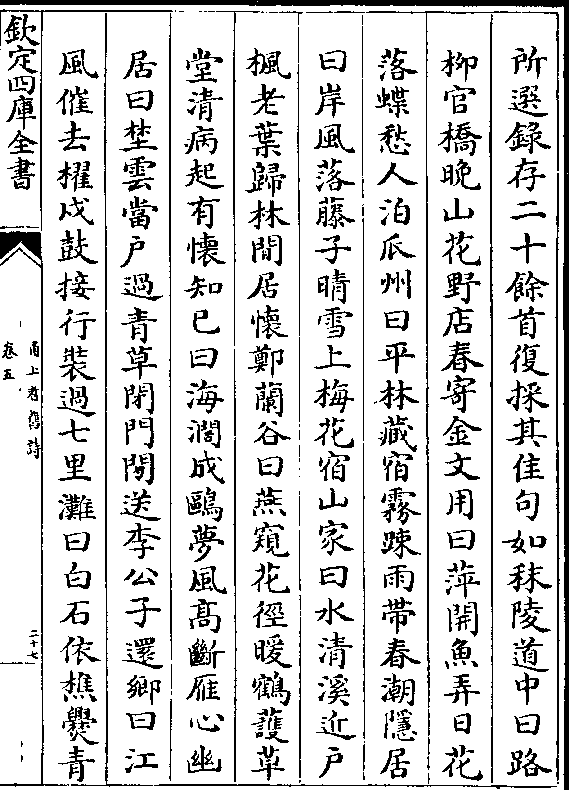 所選錄存二十餘首復採其佳句如秣陵道中曰路
柳官橋晚山花野店春寄金文用曰萍開魚弄日花
落蝶愁人泊瓜州曰平林藏宿霧疎雨帶春潮隱居
曰岸風落藤子晴雪上梅花宿山家曰水清溪近戶
楓老葉歸林間居懷鄭蘭谷曰燕窺花徑暖鶴護草
堂清病起有懷知已曰海濶成鷗夢風髙斷雁心幽
居曰埜雲當户過青草閉門閒送李公子還鄉曰江
風催去櫂戍鼓接行裝過七里灘曰白石依樵爨青
欽定四庫全書
甬上耆舊詩
卷五
二十七